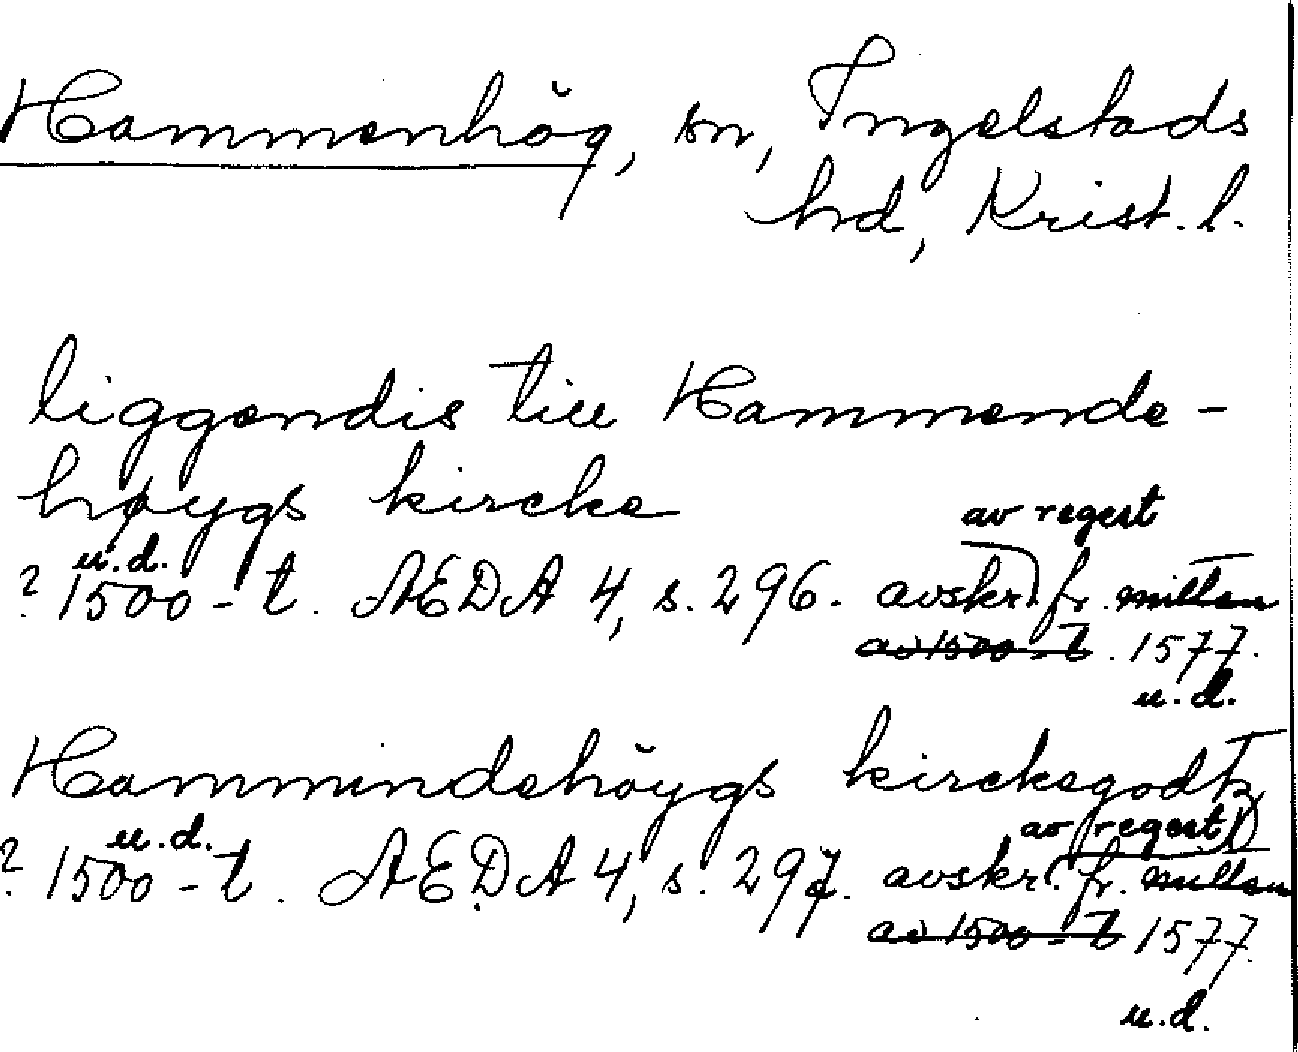 Hammenhög, sn, Ingelstads
hd, Krist. l.
liggendis till Hammende-
høygs kircke
av regest
u.d.
? 1500-t. AEDA 4, s. 296. avskr. fr. mitten
av 1500-t. 1577.
u.d.
Hammindehöygs kirckegodtz
u.d. av regest
? 1500-t. AEDA 4, s. 297. avskr. fr. mitten
av 1500-t 1577.
u.d.